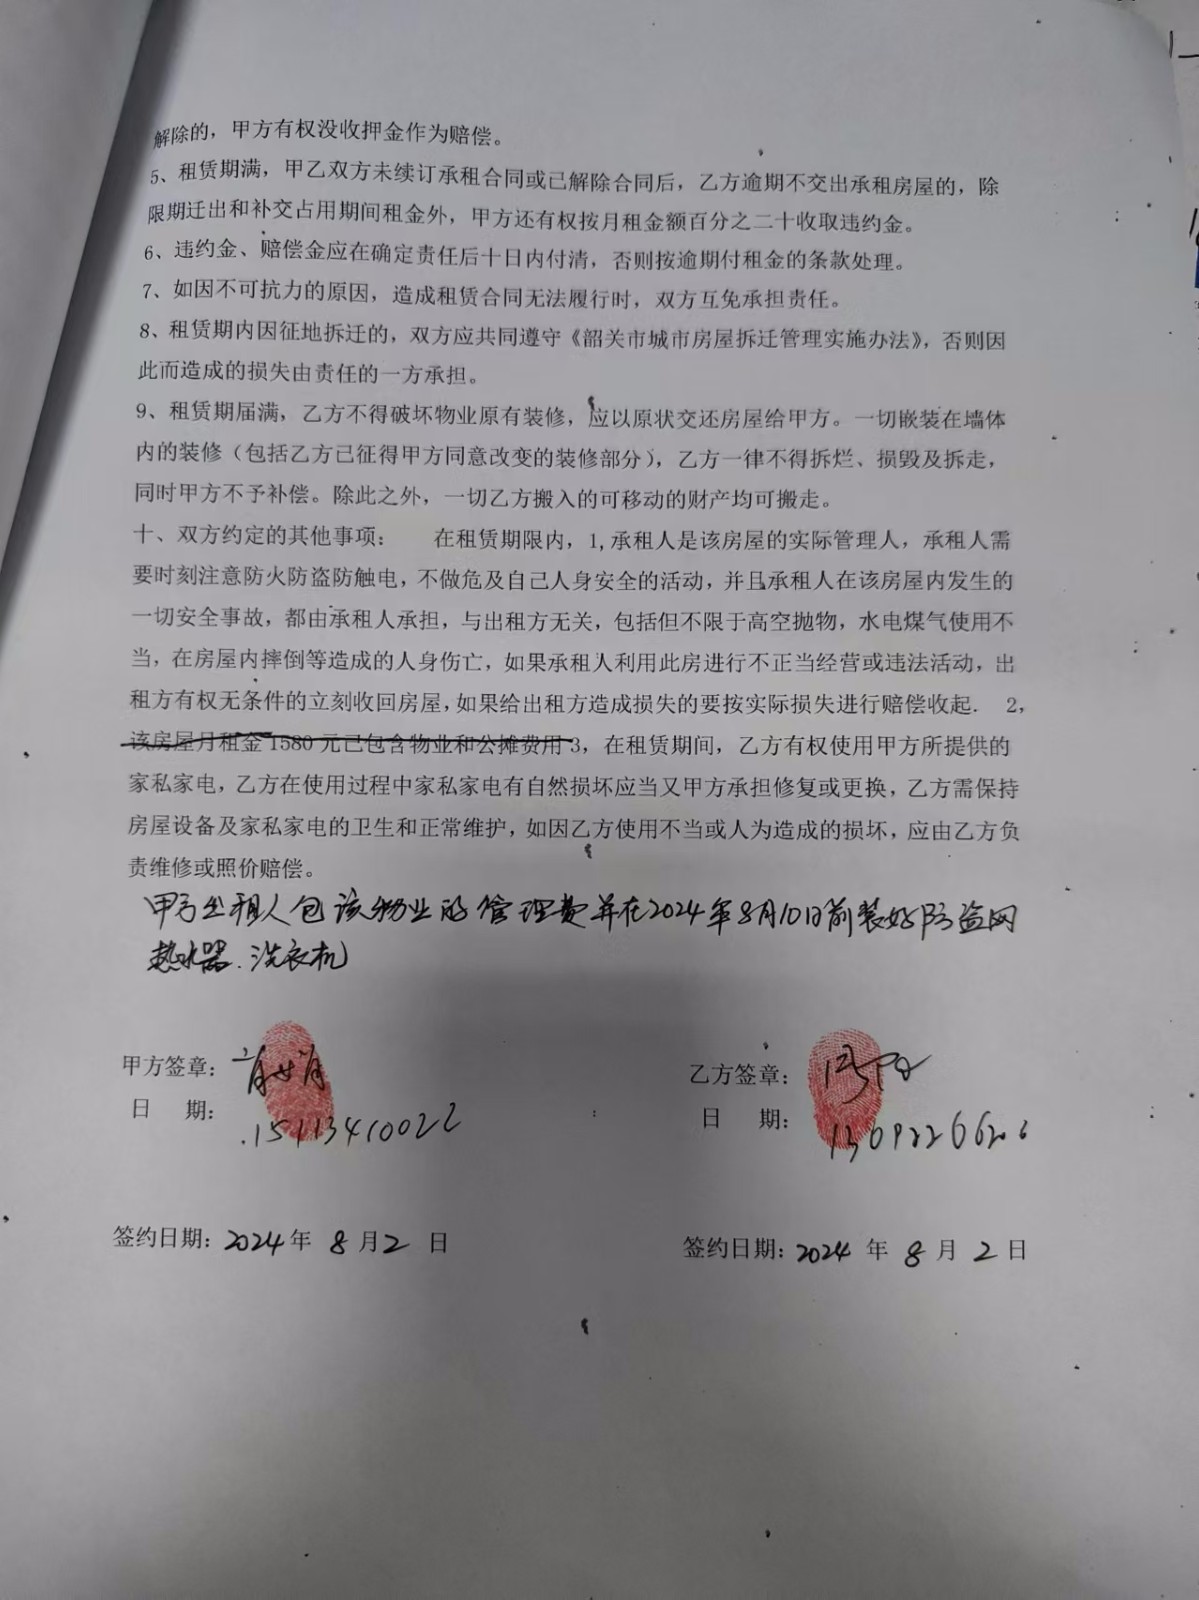 解除的，甲方有权没收押金作为赔偿。
5、租赁期满，甲乙双方未续订承租合同或已解除合同后，乙方逾期不交出承租房屋的，除
限期迁出和补交占用期间租金外，甲方还有权按月租金额百分之二十收取违约金。
6、违约金、赔偿金应在确定责任后十日内付清，否则按逾期付租金的条款处理。
7、如因不可抗力的原因，造成租赁合同无法履行时，双方互免承担责任。
8、租赁期内因征地拆迁的，双方应共同遵守《韶关市城市房屋拆迁管理实施办法》，否则因
此而造成的损失由责任的一方承担。
9、租赁期届满，乙方不得破坏物业原有装修，应以原状交还房屋给甲方。一切嵌装在墙体
内的装修（包括乙方已征得甲方同意改变的装修部分），乙方一律不得拆烂、损毁及拆走，
同时甲方不予补偿。除此之外，一切乙方搬入的可移动的财产均可搬走。
十、双方约定的其他事项： 在租赁期限内，1,承租人是该房屋的实际管理人，承租人需
要时刻注意防火防盗防触电，不做危及自己人身安全的活动，并且承租人在该房屋内发生的
一切安全事故，都由承租人承担，与出租方无关，包括但不限于高空抛物，水电煤气使用不
当，在房屋内摔倒等造成的人身伤亡，如果承租人利用此房进行不正当经营或违法活动，出
租方有权无条件的立刻收回房屋，如果给出租方造成损失的要按实际损失进行赔偿收起. 2，
该房屋月租金 1580 元已包含物业和公摊费用 3，在租赁期间，乙方有权使用甲方所提供的
家私家电，乙方在使用过程中家私家电有自然损坏应当又甲方承担修复或更换，乙方需保持
房屋设备及家私家电的卫生和正常维护，如因乙方使用不当或人为造成的损坏，应由乙方负
责维修或照价赔偿。
甲方出租人包该物业的管理费并在2024年8月10日前装好防盗网
热水器.洗衣机
甲方签章：
乙方签章：
日 期：
15113410022
日 期：
签约日期：2024年 8月2 日
签约日期：2024 年 8 月 2 日